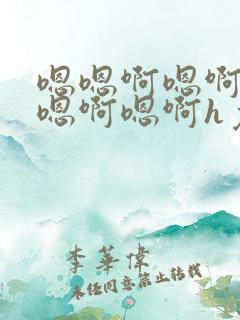 嗯嗯啊嗯啊
嗯啊嗯啊h
李華偉
未经同意禁止转载